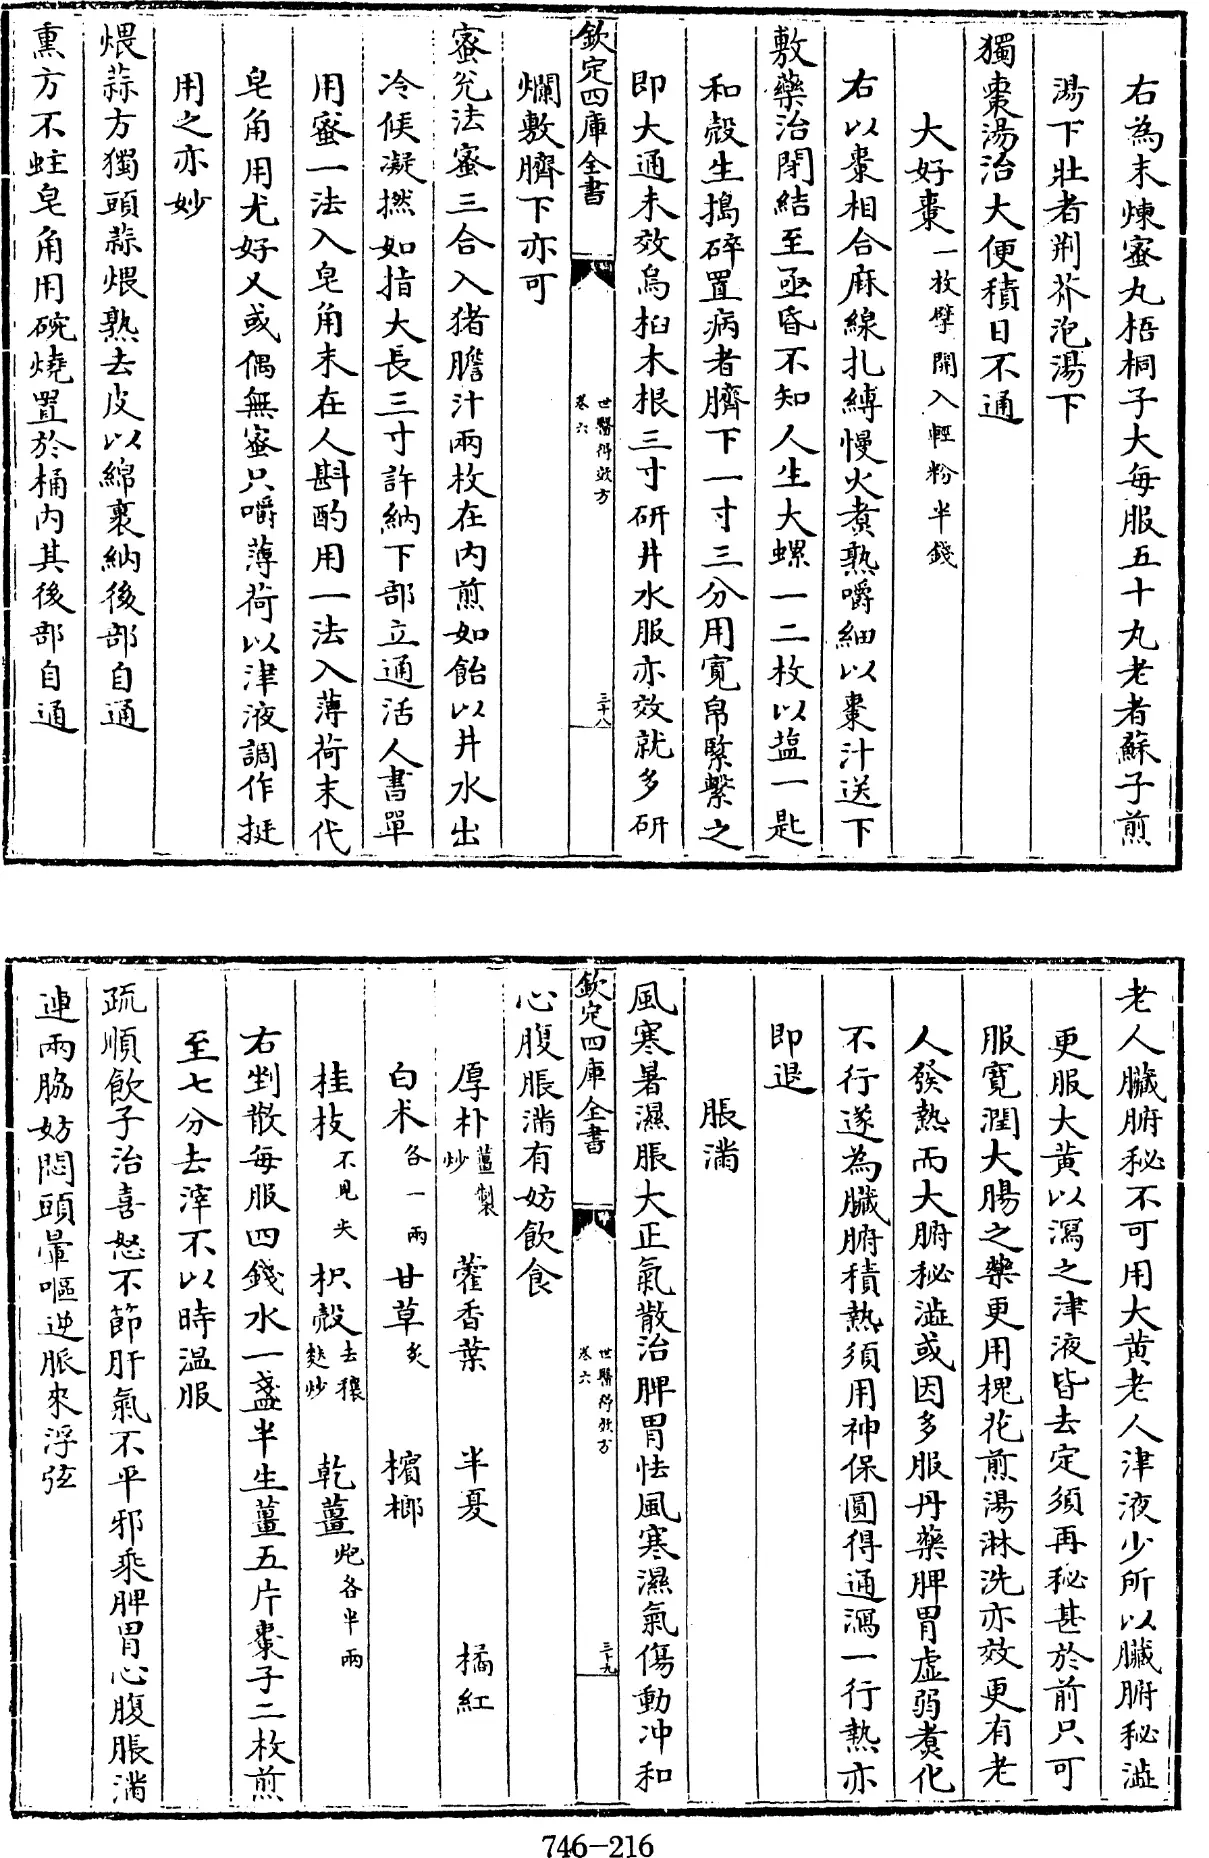 右為末煉蜜丸梧桐子大每服五十丸老者蘇子煎
湯下壯者荆芥泡湯下
獨棗湯治大便積日不通
大好棗一枚擘開入輕粉半錢
右以棗相合麻線扎縛慢火煮熟嚼細以棗汁送下
敷藥治閉結至亟昏不知人生大螺一二枚以塩一匙
和殻生搗碎置病者臍下一寸三分用寛帛緊繫之
即大通未效烏桕木根三寸研井水服亦效就多研
欽定四庫全書
世醫得效方
卷六
三十八
爛敷臍下亦可
蜜兊法蜜三合入猪膽汁兩枚在内煎如飴以井水出
冷候凝撚如指大長三寸許納下部立通活人書單
用蜜一法入皂角末在人斟酌用一法入薄荷末代
皂角用尤好又或偶無蜜只嚼薄荷以津液調作挺
用之亦妙
煨蒜方獨頭蒜煨熟去皮以綿裹納後部自通
熏方不蛀皂角用碗燒置於桶内其後部自通
老人臟腑秘不可用大黄老人津液少所以臟腑秘澁
更服大黄以瀉之津液皆去定須再秘甚於前只可
服寛潤大腸之藥更用槐花煎湯淋洗亦效更有老
人發熱而大腑秘澁或因多服丹藥脾胃虛弱煑化
不行遂為臟腑積熱須用神保圓得通瀉一行熱亦
即退
脹滿
風寒暑濕脹大正氣散治脾胃怯風寒濕氣傷動冲和
欽定四庫全書
世醫得效方
卷六
三十九
心腹脹滿有妨飲食
厚朴薑製炒 藿香葉 半夏 橘紅
白术各一兩 甘草炙 檳榔
桂枝不見火 枳殻去穰麩炒 乾薑炮各半兩
右剉散每服四錢水一盞半生薑五片棗子二枚煎
至七分去滓不以時温服
疏順飲子治喜怒不節肝氣不平邪乘脾胃心腹脹滿
連兩脇妨悶頭暈嘔逆脈來浮弦
746-216